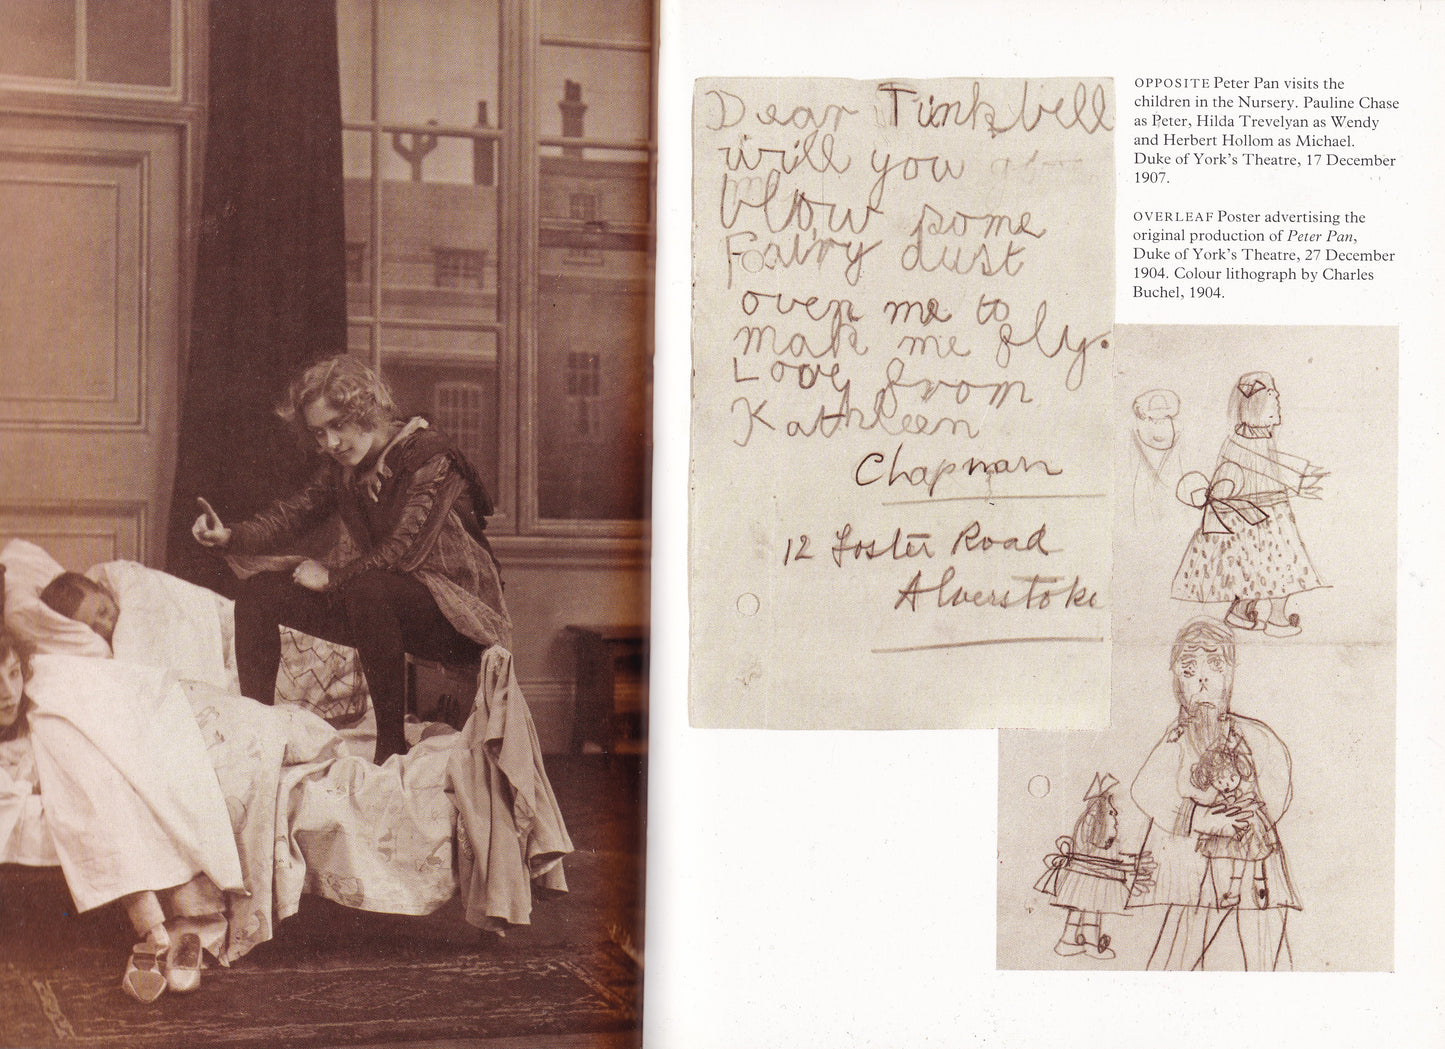 Dear Tinkbell
will you
blow some
Fairy dust
over me to
mak me fly.
Love from
Kathleen
Chapman
12 Foster Road
Alverstoke
OPPOSITE Peter Pan visits the
children in the Nursery. Pauline Chase
as Peter, Hilda Trevelyan as Wendy
and Herbert Hollom as Michael.
Duke of York's Theatre, 17 December
1907.
OVERLEAF Poster advertising the
original production of Peter Pan,
Duke of York's Theatre, 27 December
1904. Colour lithograph by Charles
Buchel, 1904.